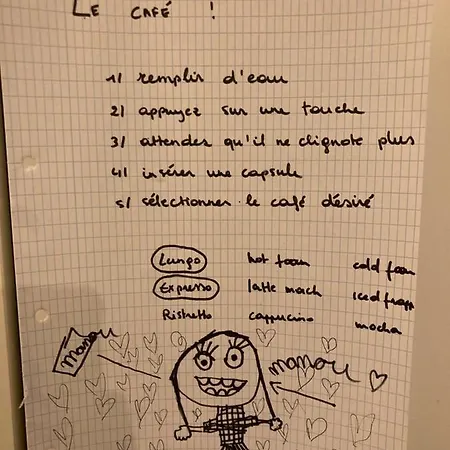 LE CAFÉ !
1/ remplir d'eau
2/ appuyez sur une touche
3/ attendes qu'il ne clignote plus
4/ insérer une capsule
5/ sélectionner le café désiré
Lungo hot foam cold foam
Expresso latte mach iced frapp
Ristretto cappucino mocha
manou manou